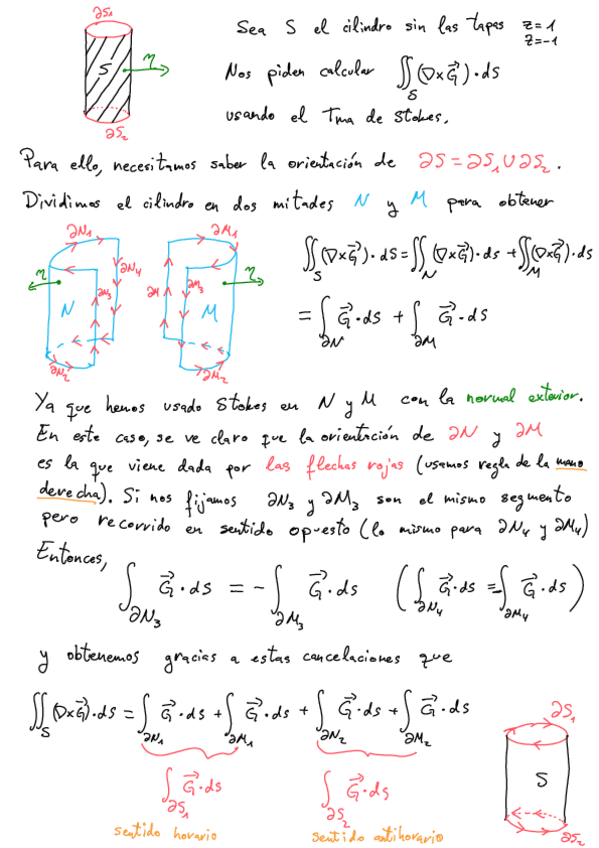 ∂S₁
S
η
∂S₂
Sea S el cilindro sin las tapas z=1
z=-1
Nos piden calcular ∬_S (∇×G⃗)·dS
usando el Tma de Stokes.
Para ello, necesitamos saber la orientación de ∂S = ∂S₁ ∪ ∂S₂.
Dividimos el cilindro en dos mitades N y M para obtener
∂N₁
∂N₄
η
∂N₃
N
∂N₂
∂M₁
∂M
∂M₃
η
M
∂M₂
∬_S (∇×G⃗)·dS = ∬_N (∇×G⃗)·ds + ∬_M (∇×G⃗)·ds
= ∫_∂N G⃗·ds + ∫_∂M G⃗·ds
Ya que hemos usado Stokes en N y M con la normal exterior.
En este caso, se ve claro que la orientación de ∂N y ∂M
es la que viene dada por las flechas rojas (usamos regla de la mano
derecha). Si nos fijamos ∂N₃ y ∂M₃ son el mismo segmento
pero recorrido en sentido opuesto (lo mismo para ∂N₄ y ∂M₄)
Entonces,
∫_∂N₃ G⃗·ds = -∫_∂M₃ G⃗·ds (∫_∂N₄ G⃗·ds = -∫_∂M₄ G⃗·ds)
y obtenemos gracias a estas cancelaciones que
∬_S (∇×G⃗)·ds = ∫_∂N₁ G⃗·ds + ∫_∂M₁ G⃗·ds + ∫_∂N₂ G⃗·ds + ∫_∂M₂ G⃗·ds
∫_∂S₁ G⃗·ds
∫_∂S₂ G⃗·ds
sentido horario
sentido antihorario
∂S₁
S
∂S₂